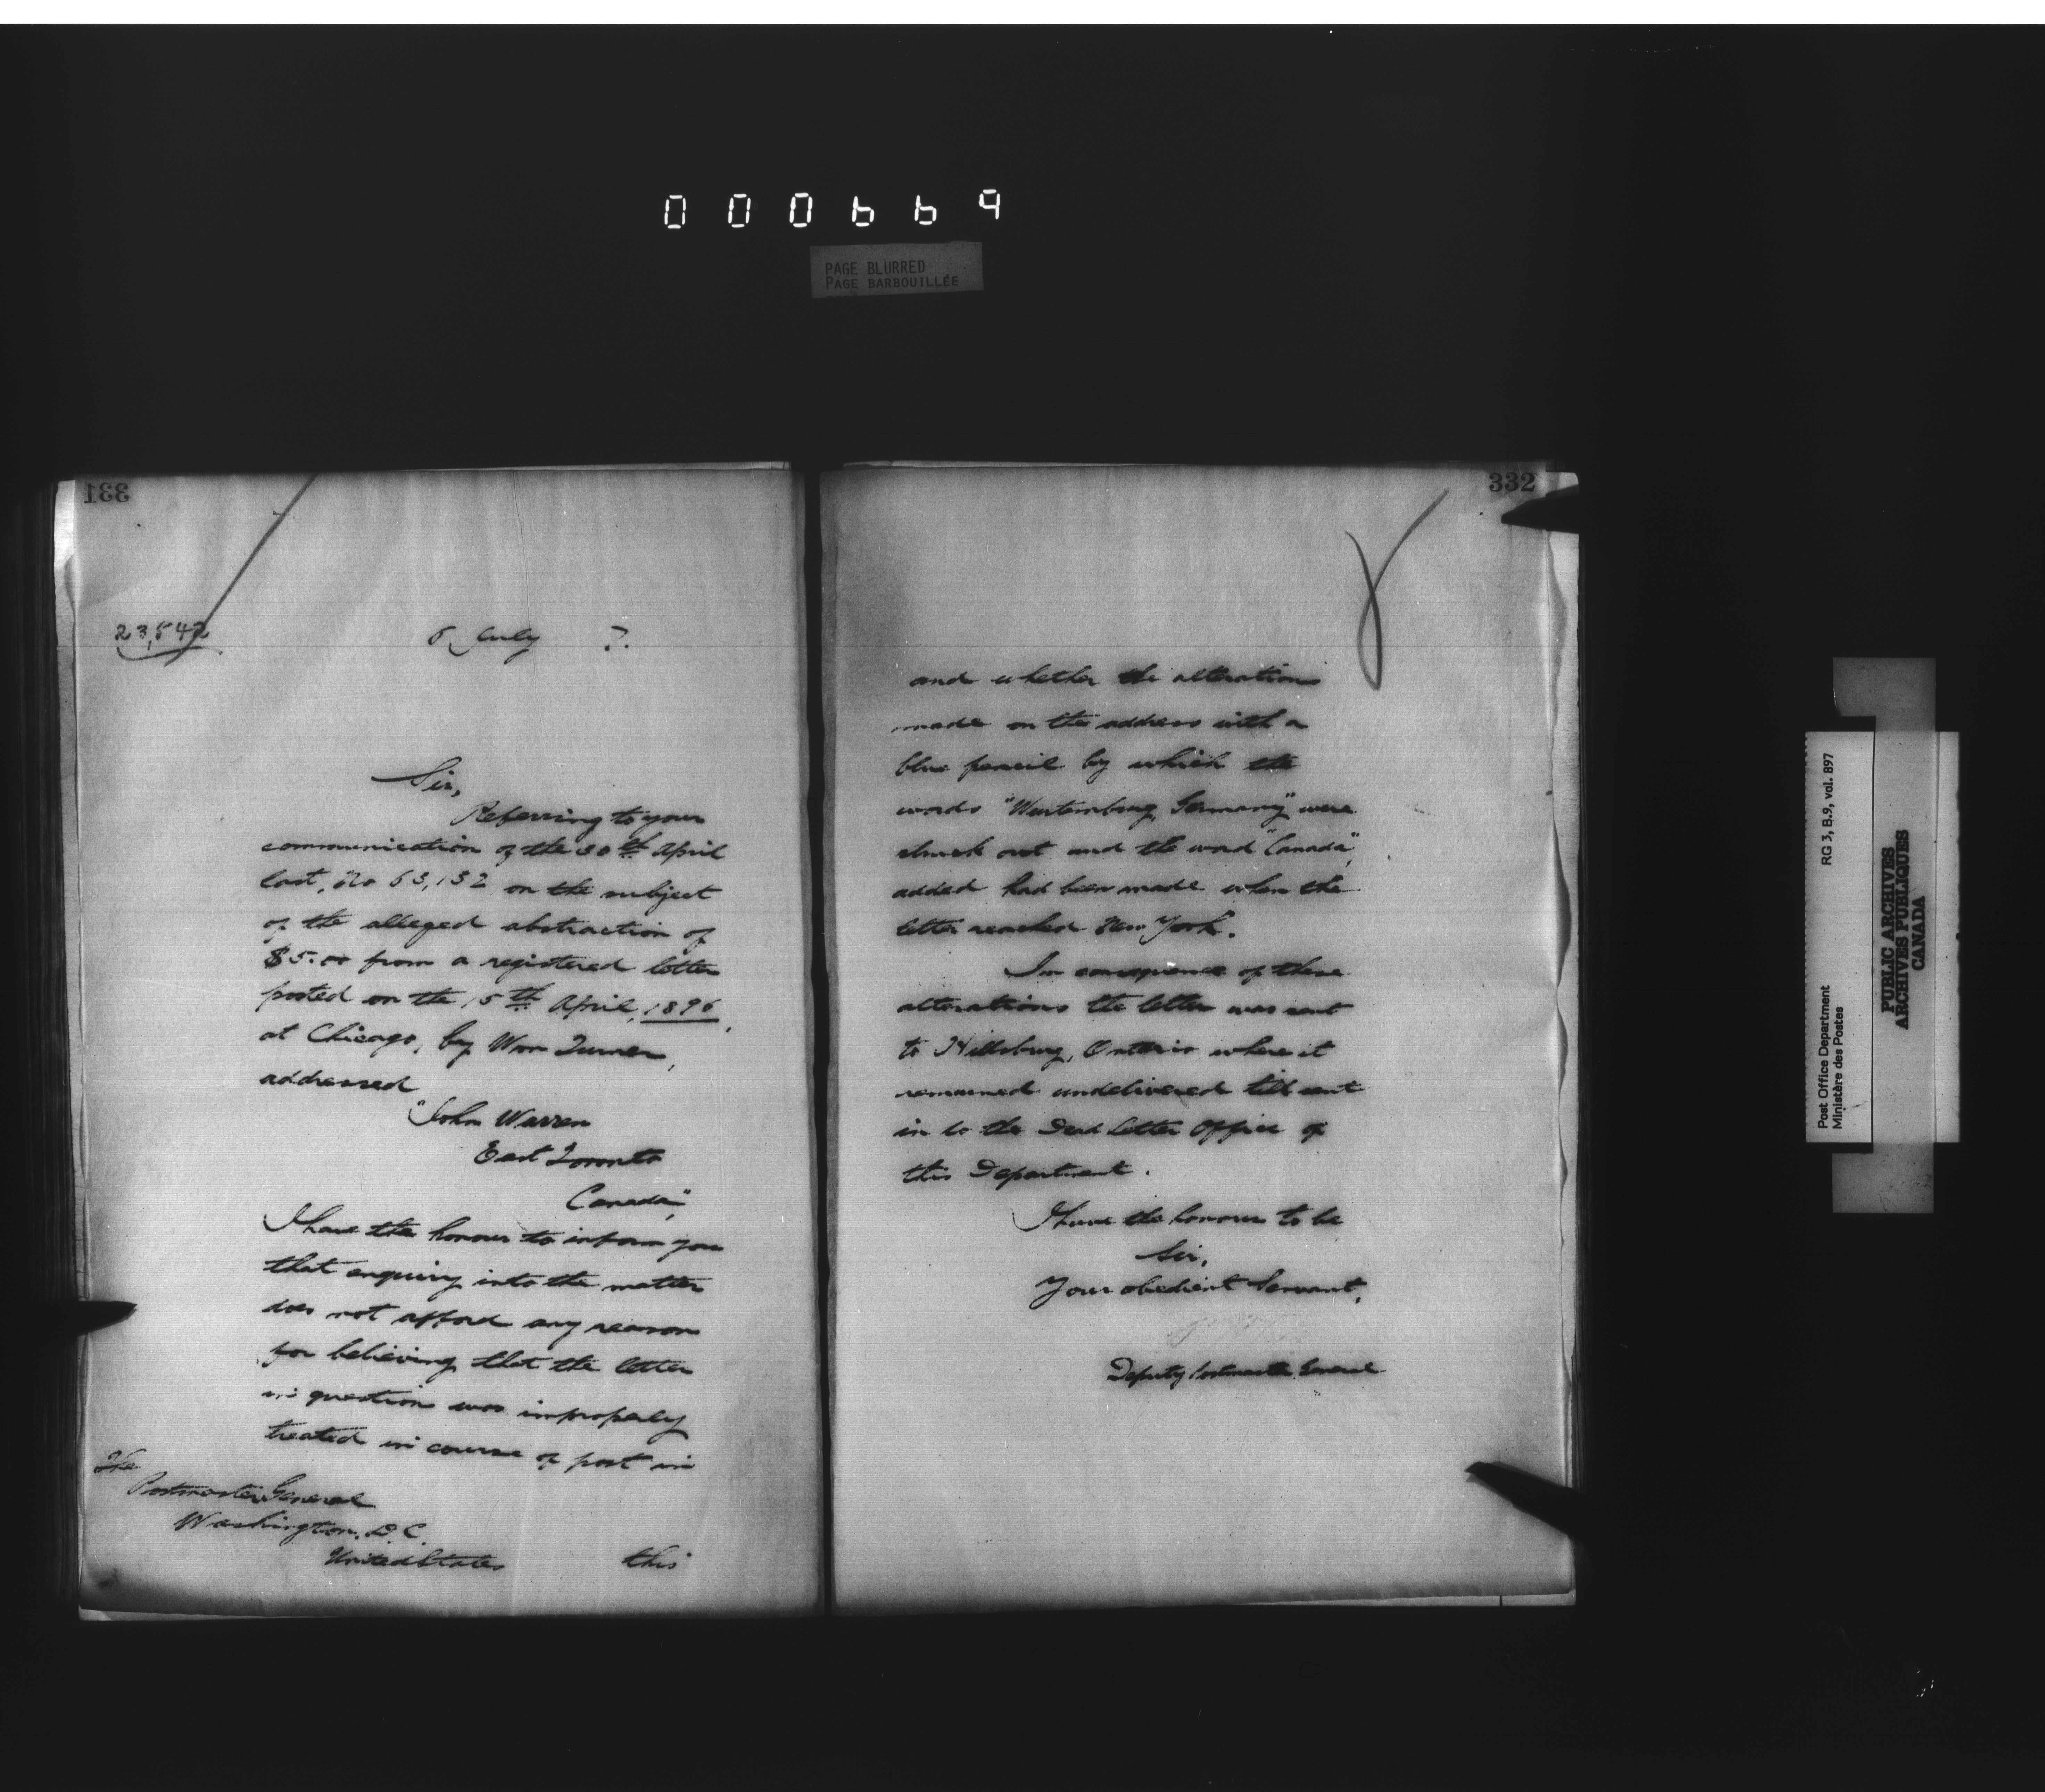 000669
PAGE BLURRED
PAGE BARBOUILLÉE
331
23,542
6 July 7.
Sir,
Referring to your
communication of the 30th April
last, No 63,132 on the subject
of the alleged abstraction of
$5.00 from a registered letter
posted on the 15th April, 1896,
at Chicago, by Wm Turner,
addressed
"John Warren
East Toronto
Canada",
I have the honour to inform you
that enquiry into the matter
does not afford any reason
for believing that the letter
in question was improperly
treated in course of post in
The
Postmaster General
Washington, D.C.
United States
this
332
and whether the alterations
made on the address with a
blue pencil by which the
words "Wurtemburg, Germany" were
struck out and the word "Canada",
added had been made when the
letter reached New York.
In consequence of these
alterations the letter was sent
to Hillsburg, Ontario where it
remained undelivered till sent
in to the Dead Letter Office of
this Department.
I have the honour to be
Sir,
Your obedient Servant,
Deputy Postmaster General
Post Office Department
Ministère des Postes
RG 3, B.9, vol. 897
PUBLIC ARCHIVES
ARCHIVES PUBLIQUES
CANADA